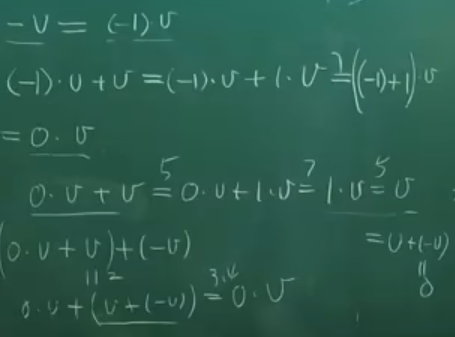 -v = (-1)·v
(-1)·v + v = (-1)·v + 1·v =⁷ ((-1)+1)·v
= 0·v
0·v + v =⁵ 0·v + 1·v =⁷ 1·v =⁵ v
(0·v + v) + (-v) = v + (-v)
|| 2 ||
0·v + (v + (-v)) =³·⁴ 0·v 0